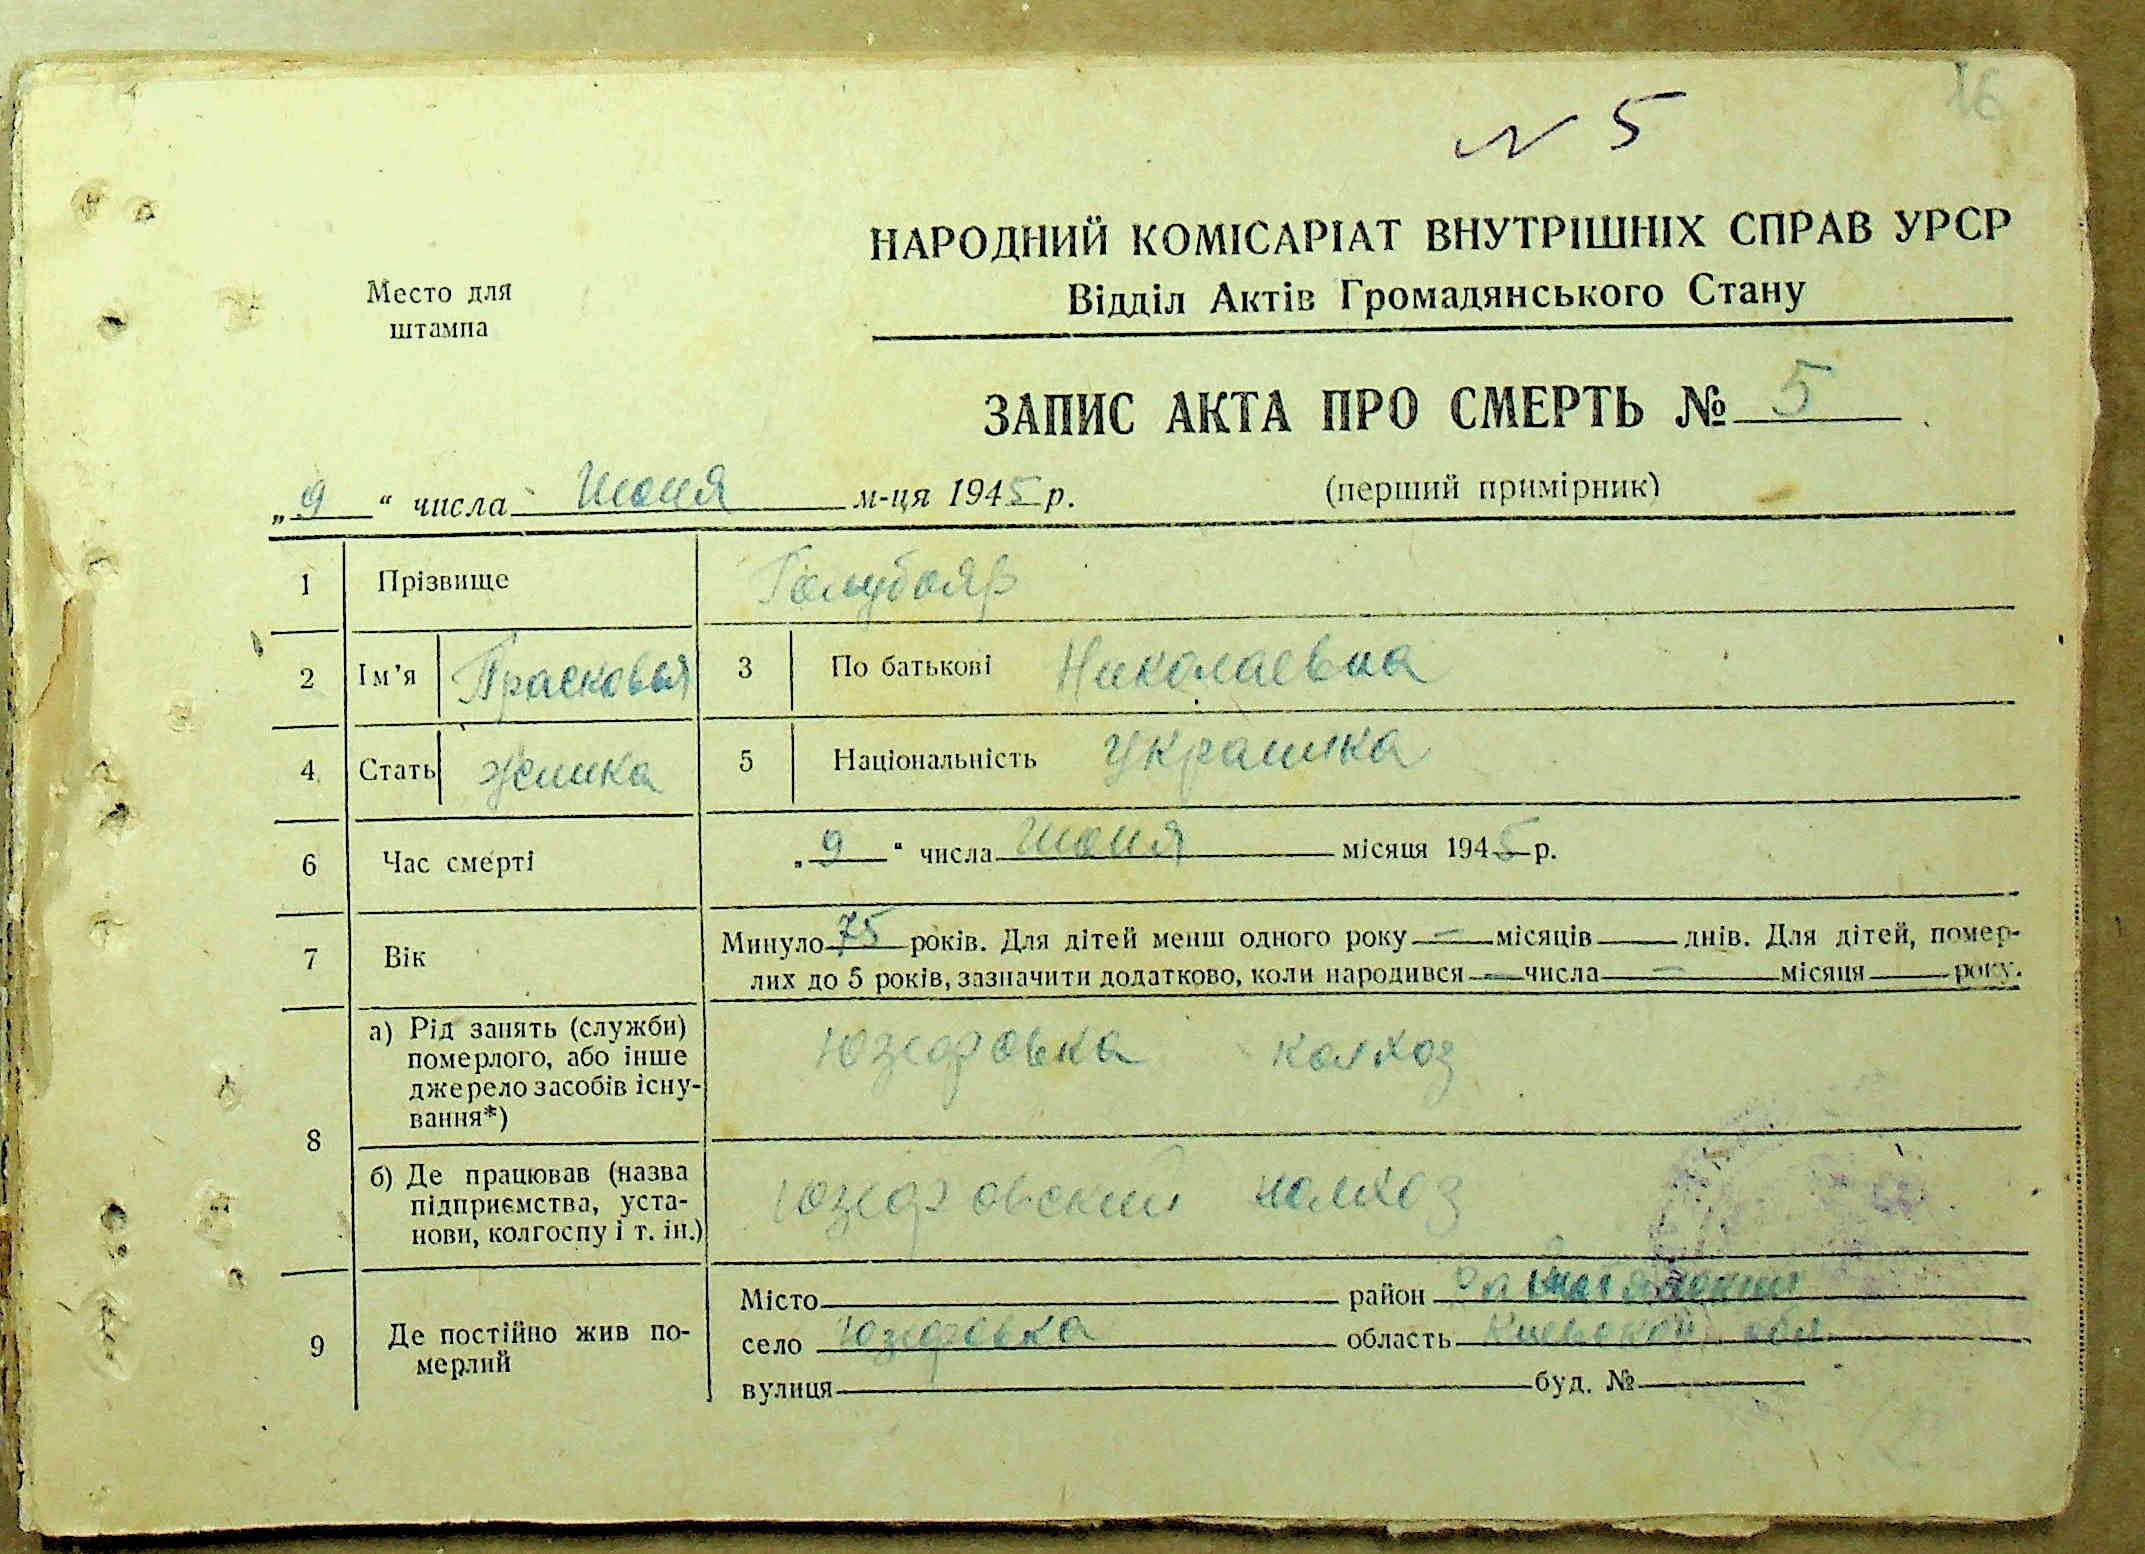 16
N 5
НАРОДНИЙ КОМІСАРІАТ ВНУТРІШНІХ СПРАВ УРСР
Відділ Актів Громадянського Стану
Место для
штампа
ЗАПИС АКТА ПРО СМЕРТЬ № 5
„9“ числа Июня м-ця 1945 р.
(перший примірник)
1 Прізвище Голубояр
2 Ім'я Прасковья 3 По батькові Николаевна
4 Стать женска 5 Національність Украинка
6 Час смерті „9“ числа Июня місяця 1945 р.
7 Вік Минуло 75 років. Для дітей менш одного року — місяців днів. Для дітей, помер-
лих до 5 років, зазначити додатково, коли народився — числа — місяця року.
8 а) Рід занять (служби)
померлого, або інше
джерело засобів існу-
вання*)
Юзефовка колхоз
б) Де працював (назва
підприємства, уста-
нови, колгоспу і т. ін.)
Юзефовский колхоз
9 Де постійно жив по-
мерлий
Місто район
село Юзефовка область Киевской обл
вулиця буд. №